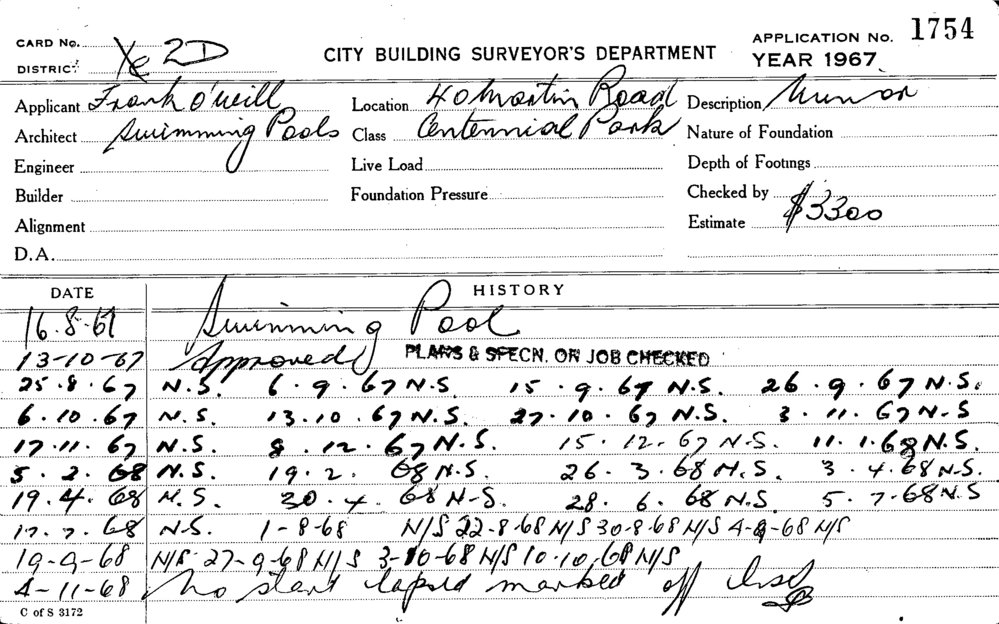 CARD No. Xe 2D CITY BUILDING SURVEYOR'S DEPARTMENT APPLICATION No. 1754
DISTRICT YEAR 1967
Applicant Frank O'Neill Location 40 Martin Road Description Minor
Architect Swimming Pools Class Centennial Park Nature of Foundation
Engineer Live Load Depth of Footings
Builder Foundation Pressure Checked by
Alignment Estimate $3300
D.A.
DATE HISTORY
16.8.67 Swimming Pool
13-10-67 Approved PLANS & SPECN. ON JOB CHECKED
25.8.67 N.S. 6.9.67 N.S. 15.9.67 N.S. 26.9.67 N.S.
6.10.67 N.S. 13.10.67 N.S. 27.10.67 N.S. 3.11.67 N.S
17.11.67 N.S. 8.12.67 N.S. 15.12.67 N.S. 11.1.68 N.S.
5.2.68 N.S. 19.2.68 N.S. 26.3.68 N.S. 3.4.68 N.S.
19.4.68 N.S. 30.4.68 N-S. 28.6.68 N.S 5.7-68 N.S
17.7.68 N-S. 1-8-68 N/S 22-8-68 N/S 30-8-68 N/S 4-9-68 N/S
19-9-68 N/S 27-9-68 N/S 3-10-68 N/S 10.10.68 N/S
4-11-68 No start lapsed marked off
C of S 3172